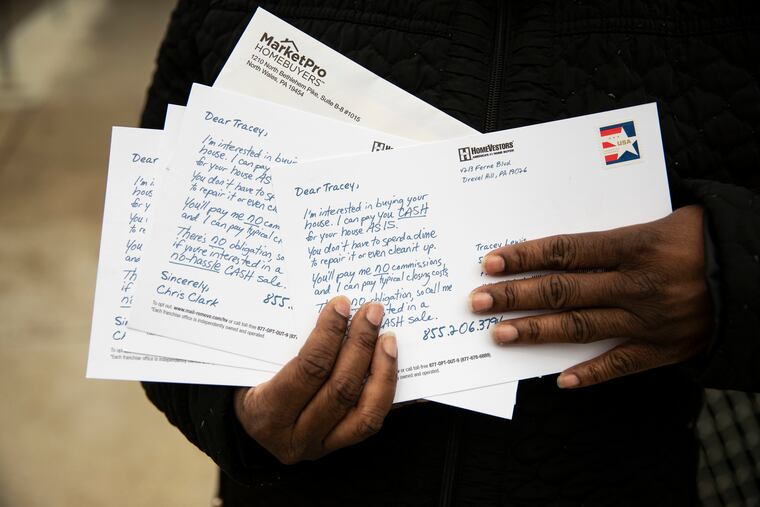 MarketPro
HOMEBUYERS™
1210 North Bethlehem Pike, Suite B-8 #1015
North Wales, PA 19454
Dear
I'm
house
for your
You don't
to repair
You'll pay
and
There's
if
no-hassle
Sincerely,
Dear Tracey,
I'm interested in buying
house. I can pay
for your house AS IS.
You don't have to
to repair it or even clean
You'll pay me NO
and I can pay typical
There's NO obligation, so
if you're interested in a
no-hassle CASH sale.
Sincerely,
Chris Clark
855.
To opt out, www.mail-remove.com/hv or call toll free 877-OPT-OUT-9 (877
*Each franchise office is independently owned and operated.
HOMEVESTORS
AMERICA'S #1 HOME BUYER
4213 Ferne Blvd
Drexel Hill, PA 19026
USA
Dear Tracey,
I'm interested in buying your
house. I can pay you CASH
for your house AS IS.
You don't have to spend a dime
to repair it or even clean it up.
You'll pay me NO commissions,
and I can pay typical closing costs.
NO obligation, so call me
interested in a
CASH sale.
Tracey
855.206.379
or call toll free 877-OPT-OUT-9 (877-678-6889).
owned and operated.